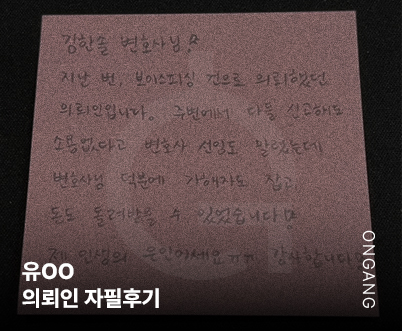 김한솔 변호사님♡
지난 번, 보이스피싱 건으로 의뢰했던
의뢰인입니다. 주변에서 다들 신고해도
소용없다고 변호사 선임도 말렸는데
변호사님 덕분에 가해자도 잡고,
돈도 돌려받을 수 있었습니다
인생의 은인이세요ㅠㅠ 감사합니다
유OO
의뢰인 자필후기
ONGANG